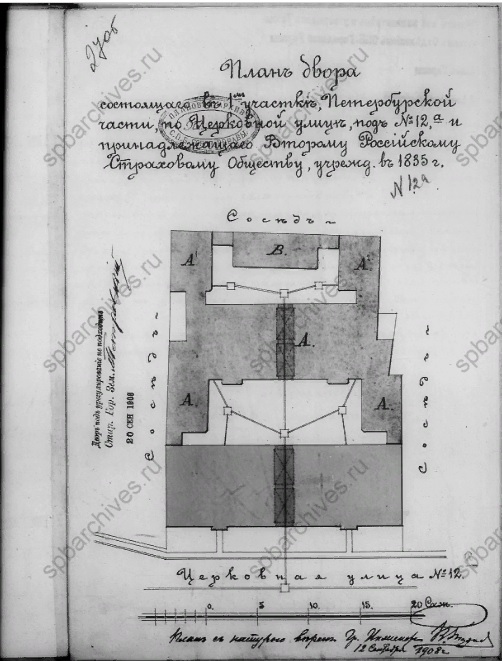 Планъ двора
состоящаго въ 1 участкѣ, Петербургской
части, по Церковной улицѣ, подъ № 12,а и
принадлежащаго Второму Россійскому
Страховому Обществу, учрежд. въ 1835 г.
N 12а
Сосѣдъ
А
В.
А
А.
А.
А.
Сосѣдъ
Сосѣдъ
Дворъ подъ урегулированіе не подходитъ
Стар. Гор. Зем.
20 СЕН 1908
Церковная улица № 12.
0. 5 10. 15. 20 Саж.
Планъ съ натурою вѣренъ Гр. Инженеръ
12 Сентября 1908 г.
spbarchives.ru